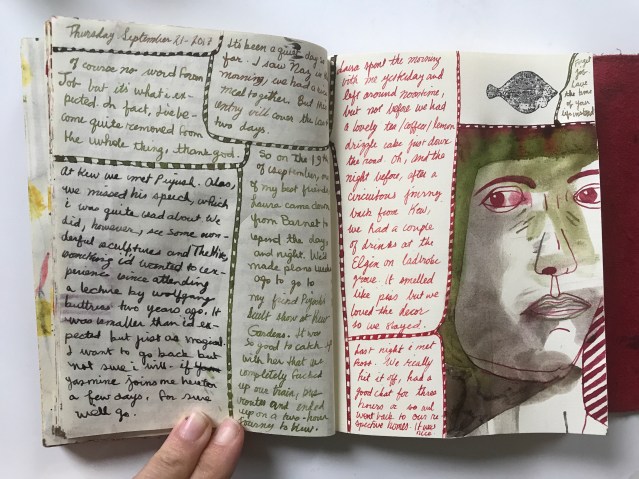 Thursday, September 21 - 2017
Of course no word from
Job but it's what is ex-
pected. In fact, I've be-
come quite removed from
the whole thing, thank god.
At Kew we met Piyush. Alas,
we missed his speech, which
i was quite sad about. We
did, however, see some won-
derful sculptures and The Hive
something i'd wanted to ex-
perience since attending
a lecture by wolfgang
buttress two years ago. It
was smaller than i'd ex-
pected but just as magical.
I want to go back but
not sure i will. if
yasmine joins me here
a few days, for sure
we'll go.
It's been a quiet day so
far. I saw Naz in the
morning, we had a
meal together. But this
entry will cover the last
two days.
So on the 19th
of september, one
of my best friends
Laura came down
from Barnet to
spend the day
and night. We'd
made plans weeks
ago to go to
my friend Piyush's
show at Kew
Gardens. It was
so good to catch up
with her that we
completely fucked
up our train
routes and ended
up on a two-hour
journey to Kew.
Laura spent the morning
with me yesterday and
left around noontime,
but not before we had
a lovely tea/coffee/lemon
drizzle cake just down
the road. Oh, and the
night before, after a
circuitous journey
back from Kew,
we had a couple
of drinks at the
Elgin on ladbroke
grove. it smelled
like piss but we
loved the decor
so we stayed.
Last night i met
Ross. We really
hit it off, had a
good chat for three
hours or so and
went back to our re-
spective homes. It was
nice
Forget
job
have
the time
of your
life instead